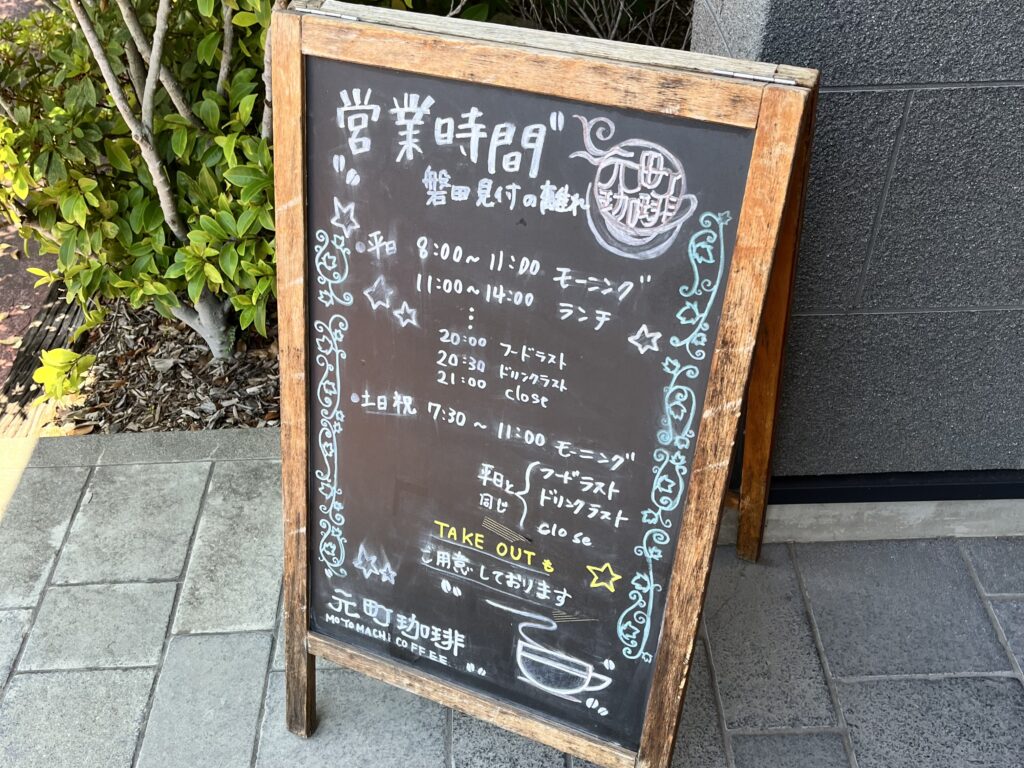 営業時間
元町
珈琲
磐田見付の離れ
平日 8:00～11:00 モーニング
11:00～14:00 ランチ
⋮
20:00 フードラスト
20:30 ドリンクラスト
21:00 close
土日祝 7:30～11:00 モーニング
平日と同じ
フードラスト
ドリンクラスト
close
TAKE OUTも
ご用意しております
元町珈琲
MOTOMACHI COFFEE